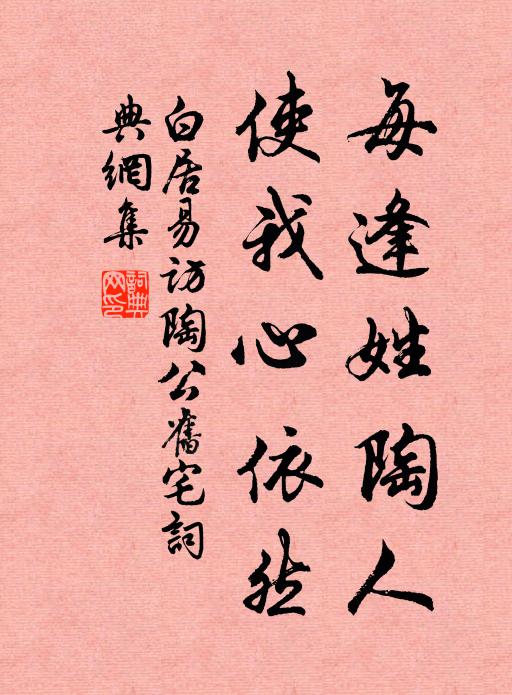 每逢姓陶人
使我心依然
白居易訪陶公舊宅詞
典網集
詞典网印